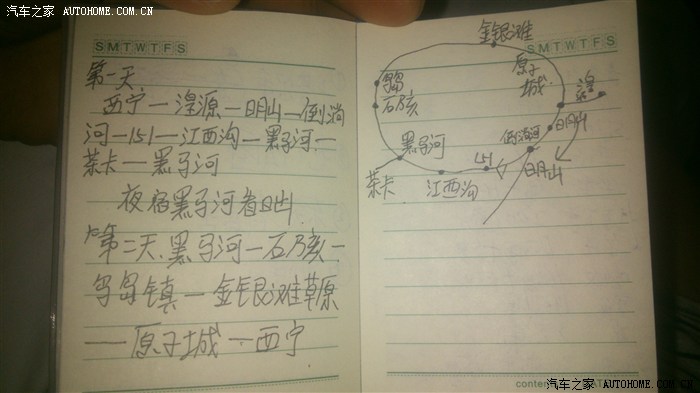 汽车之家 AUTOHOME.COM.CN
SMTWTFS
第一天
西宁—湟源—日月山—倒淌
河—151—江西沟—黑马河—
茶卡—黑马河
夜宿黑马河看日出
第二天.黑马河—石乃亥—
鸟岛镇—金银滩草原
——原子城—西宁
SMTWTFS
金银滩
原子城
湟
鸟岛
石乃亥
日月山
倒淌河
黑马河
151
日月山
茶卡
江西沟
content
汽车之家 AUTOHOME.COM.CN